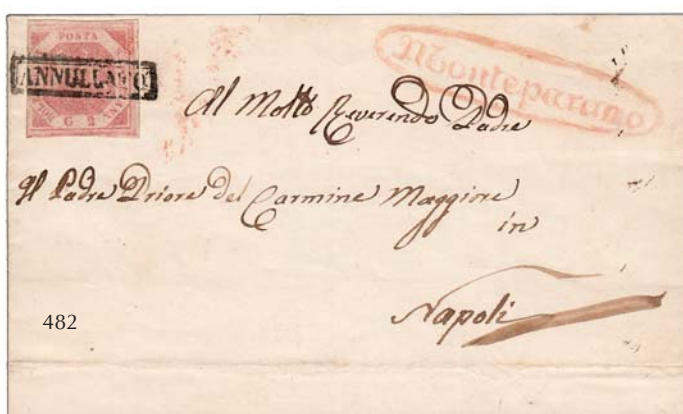 POSTA
ANNULLATO
G. 2
Monteparano
Al Molto Reverendo Padre
Il Padre Priore del Carmine Maggiore
in
Napoli
482